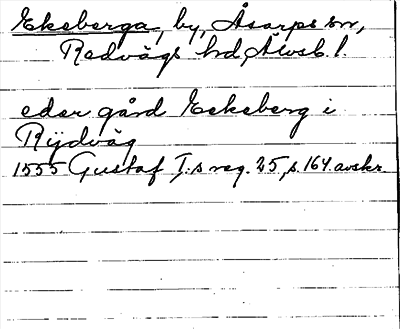 Ekeberga, by, Åsarps sn,
Redvägs hd, Älvsb. l.
eder gård Eekeberg i
Rijdväg
1555 Gustaf I:s reg. 25, s. 164. avskr.